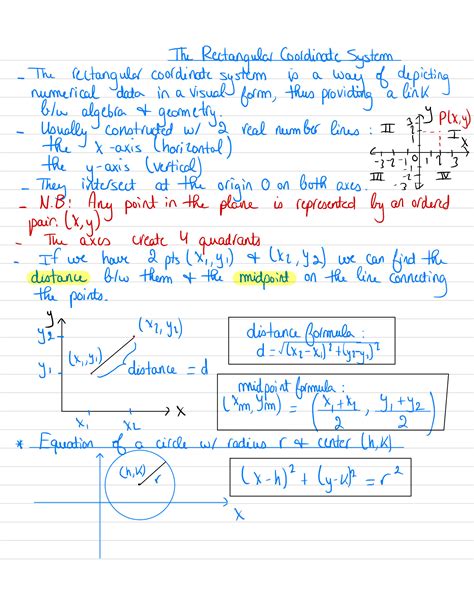 The Rectangular Coordinate System
- The rectangular coordinate system is a way of depicting
numerical data in a visual form, thus providing a link
b/w algebra & geometry.
- Usually constructed w/ 2 real number lines :
the x-axis (horizontal)
the y-axis (vertical)
II 3 y P(x,y)
2 I
1
-3 -2 -1 0 1 2 3 x
III -3 IV
- They intersect at the origin O on both axes.
- N.B: Any point in the plane is represented by an ordered
pair. (x,y)
- The axes create 4 quadrants.
- If we have 2 pts (x₁,y₁) & (x₂,y₂) we can find the
distance b/w them & the midpoint on the line connecting
the points.
y
y₂ (x₂,y₂)
y₁ (x₁,y₁) distance = d
x₁ x₂ x
distance formula :
d = √(x₂-x₁)²+(y₂-y₁)²
midpoint formula :
(xm,ym) = (x₁+x₂/2 , y₁+y₂/2)
* Equation of a circle w/ radius r & center (h,k)
(h,k) r
x
(x-h)² + (y-k)² = r²